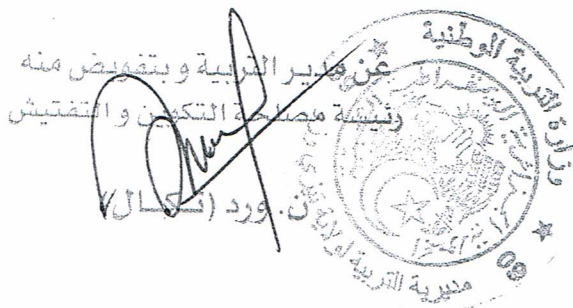 عن مدير التربية و بتفويض منه
رئيسة مصلحة التكوين و التفتيش
ن. ورد (نكال)
وزارة التربية الوطنية
مديرية التربية لولاية
09